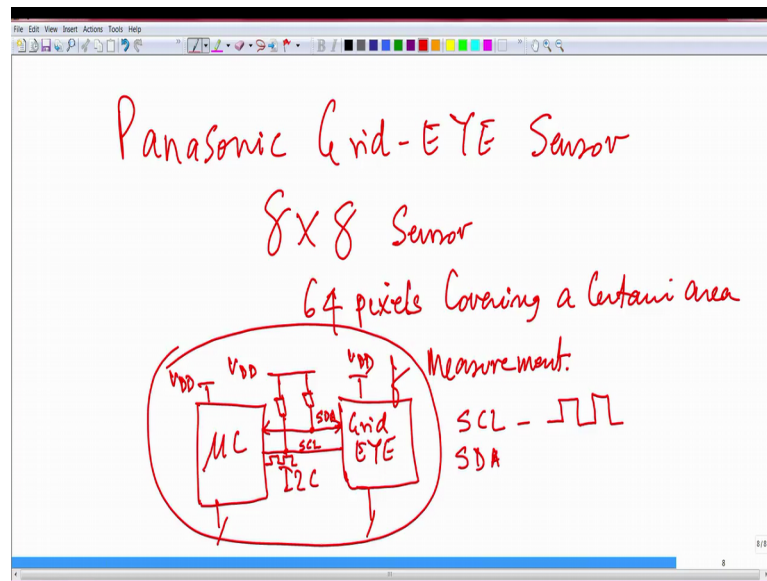 File Edit View Insert Actions Tools Help
Panasonic Grid-EYE Sensor
8x8 Sensor
64 pixels Covering a Certain area
Measurement.
VDD VDD VDD
SDA
SCL
μC
Grid
EYE
I2C
SCL -
SDA
8/8
8